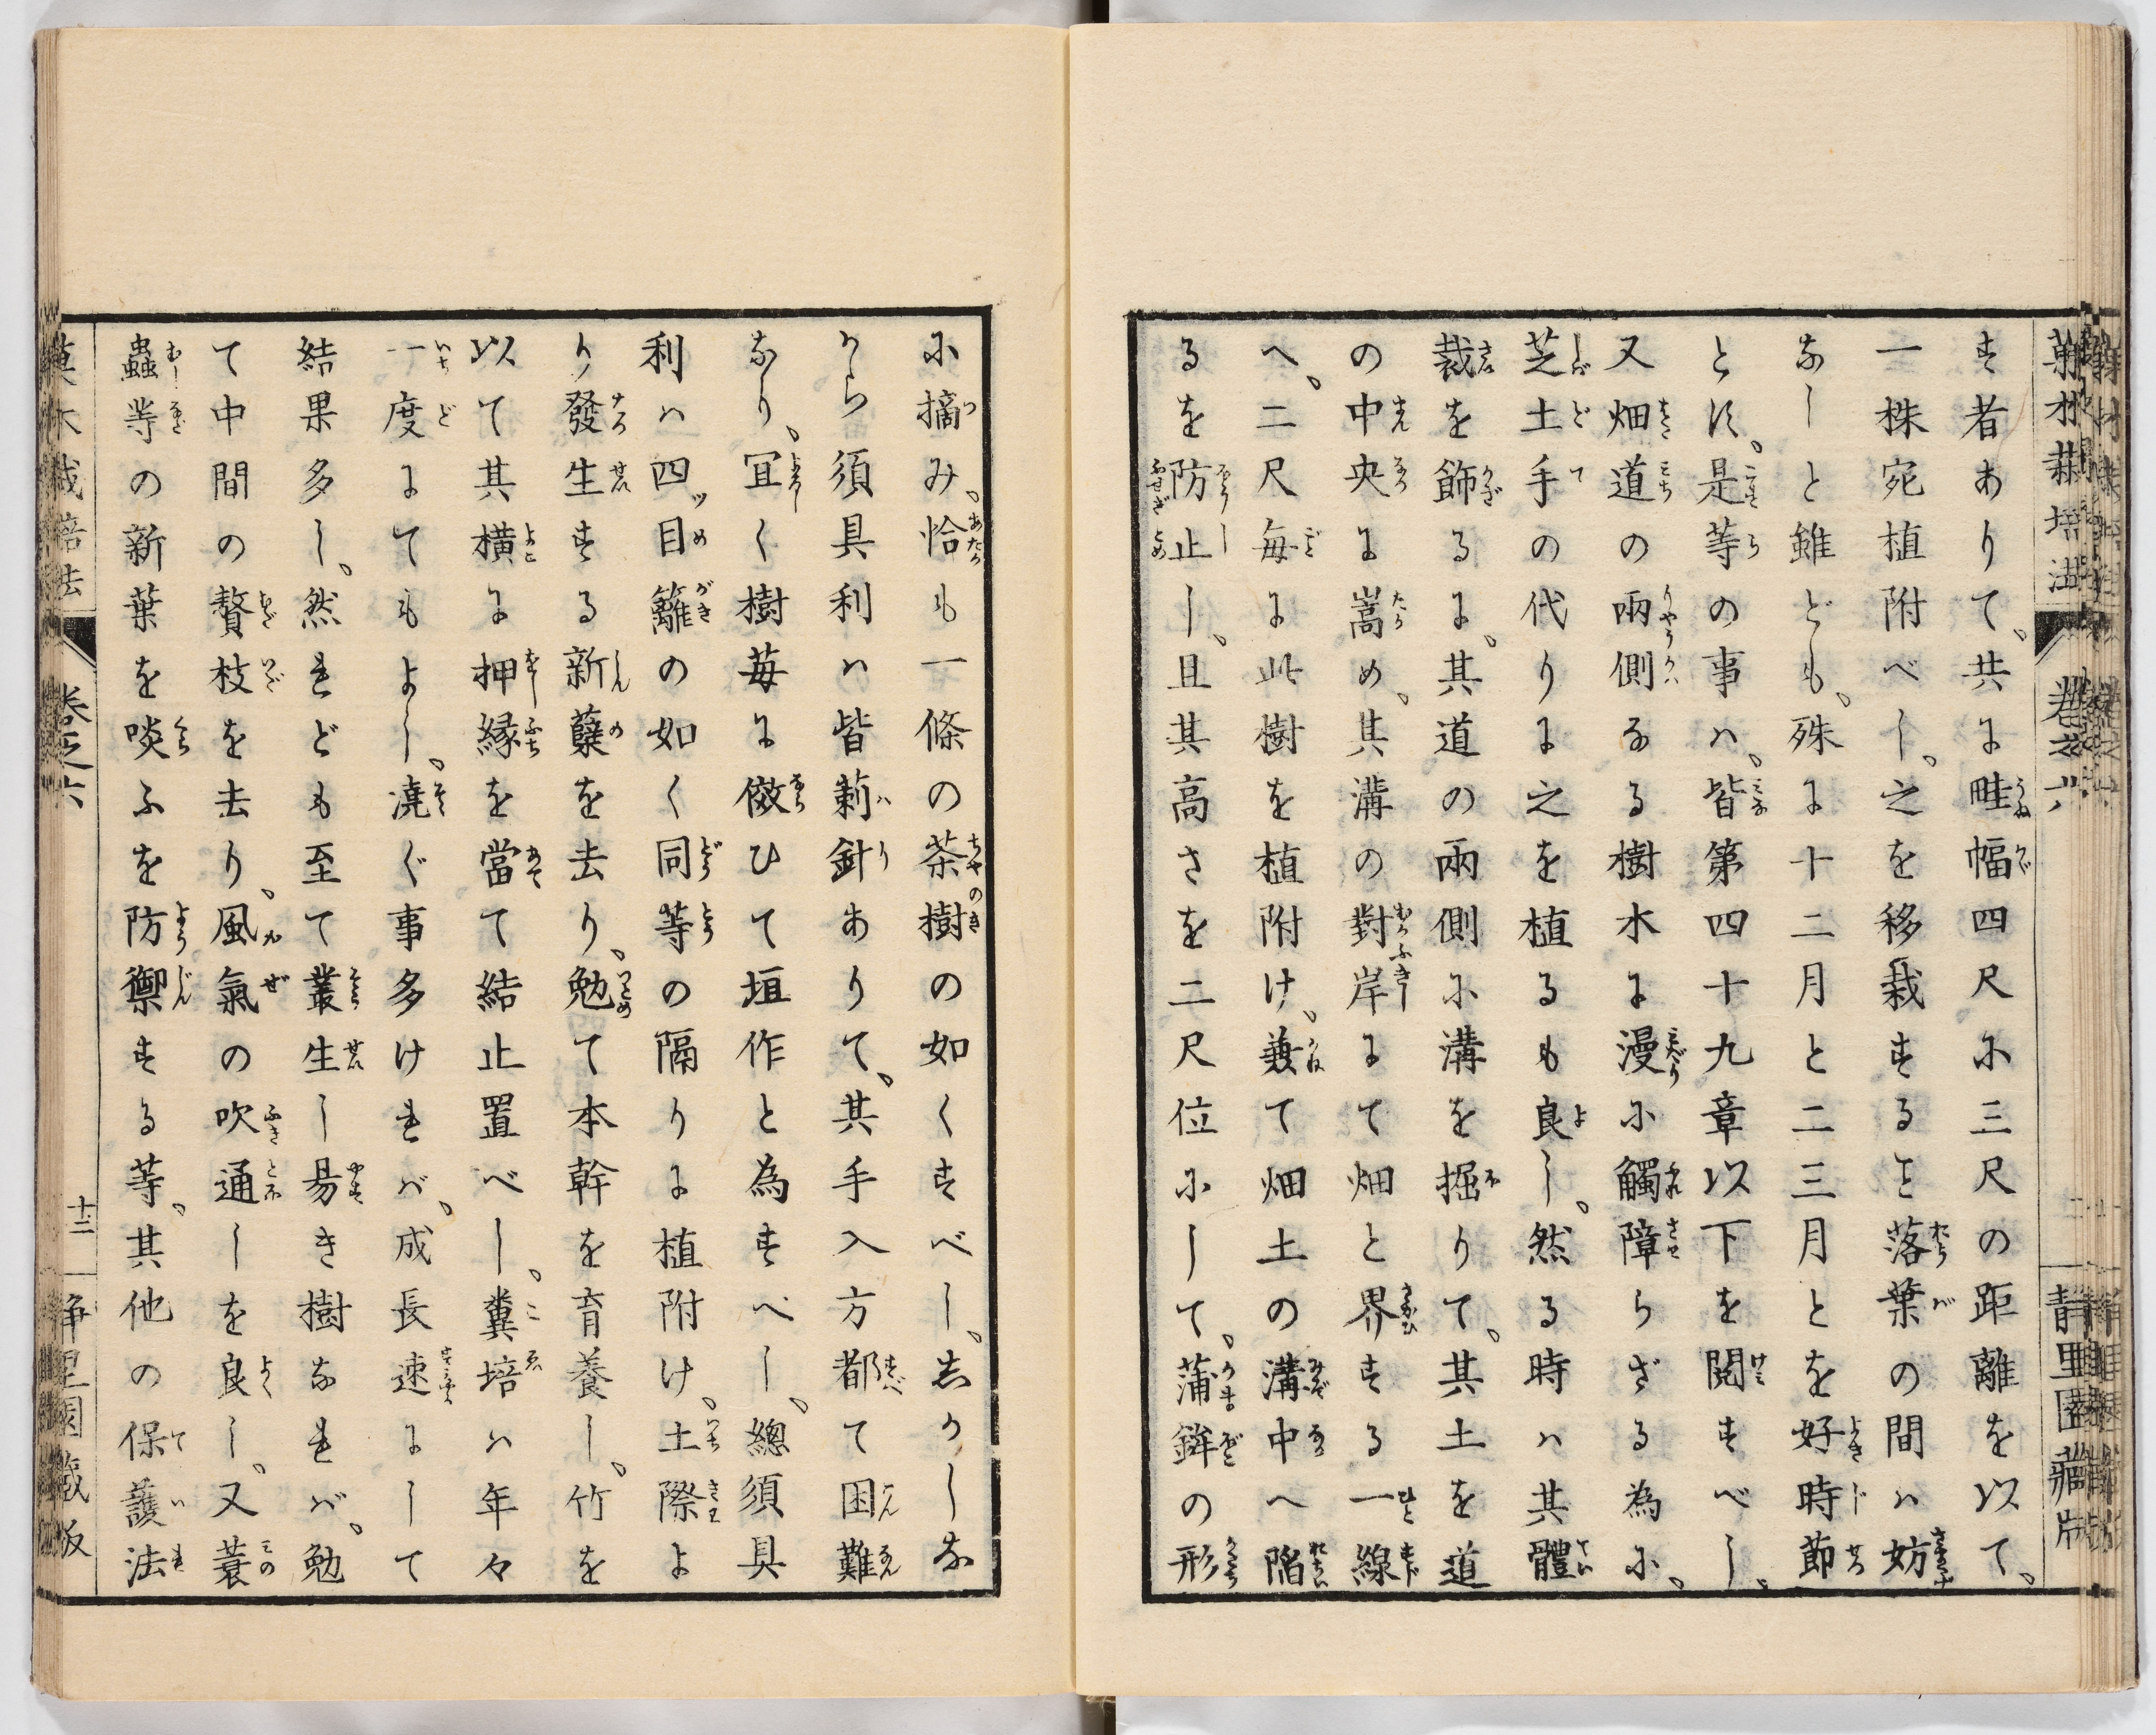 す者ありて、共に畦幅四尺に三尺の距離を以て、
一株宛植附べし。之を移栽するヿ落葉の間は妨
なしと雖ども、殊に十二月と二三月とを好時節
とす。是等の事は、皆第四十九章以下を閲すべし。
又畑道の兩側なる樹木に漫に觸障らざる為に、
芝土手の代りに之を植るも良し。然る時は其體
裁を飾るに、其道の兩側に溝を掘りて、其土を道
の中央に嵩め、其溝の對岸にて畑と界する一線
へ、二尺毎に此樹を植附け、兼て畑土の溝中へ陥
るを防止し、且其高さを二尺位にして、蒲鉾の形
に摘み、恰も一條の茶樹の如くすべし。志かしな
から須具利は皆莿針ありて、其手入方都て困難
なり。冝く樹毎に傚ひて垣作と為すべし。總須具
利は四ッ目籬の如く同等の隔りに植附け、土際よ
り發生する新蘖を去り、勉て本幹を育養し、竹を
以て其横に押縁を當て結止置べし。糞培は年々
一度にてもよし。澆ぐ事多ければ、成長速にして
結果多し。然れども至て叢生し易き樹なれば、勉
て中間の贅枝を去り、風氣の吹通しを良し。又蓑
蟲等の新葉を啖ふを防禦する等、其他の保護法
卷之六
十二